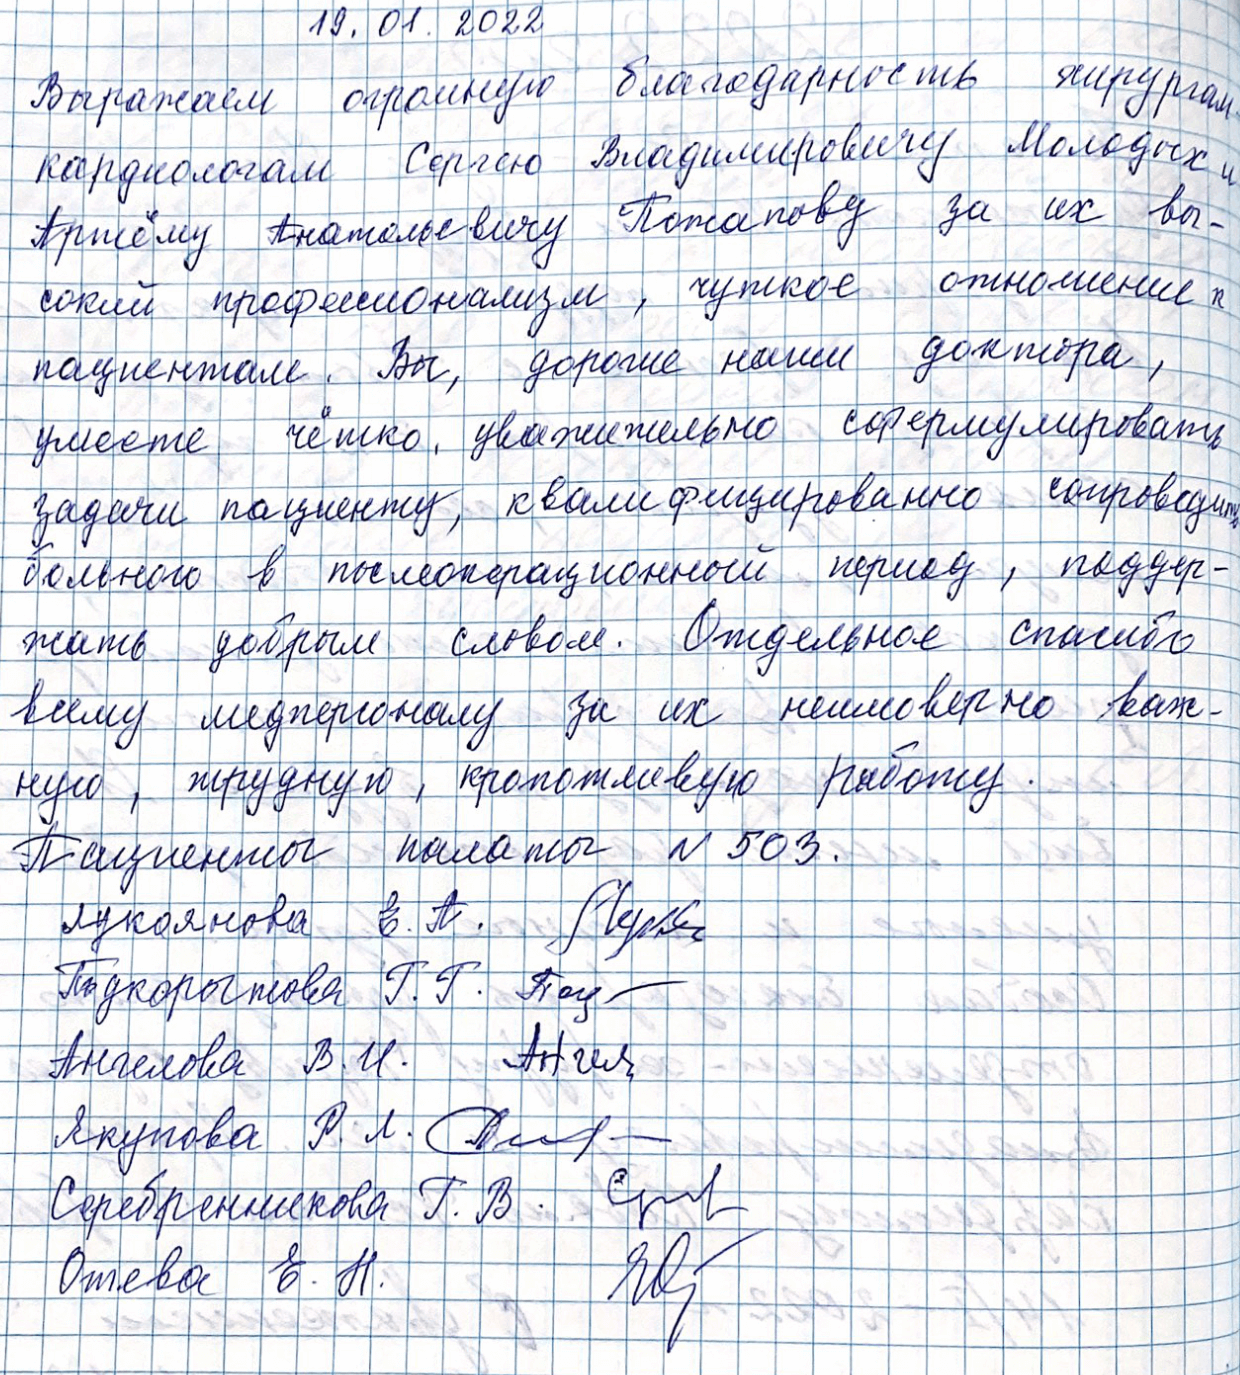 19.01.2022
Выражаем огромную благодарность хирургам-
кардиологам Сергею Владимировичу Молодых и
Артёму Анатольевичу Потапову за их вы-
сокий профессионализм, чуткое отношение к
пациентам. Вы, дорогие наши доктора,
умеете чётко, уважительно сформулировать
задачи пациенту, квалифицированно сопроводить
больного в послеоперационный период, поддер-
жать добрым словом. Отдельное спасибо
всему медперсоналу за их неимоверно важ-
ную, трудную, кропотливую работу.
Пациенты палаты N 503.
Лукоянова Е. А.
Подкорытова Г. Г.
Ангелова В. И.
Якупова Р. Л.
Серебренникова Г. В.
Отева Е. Н.